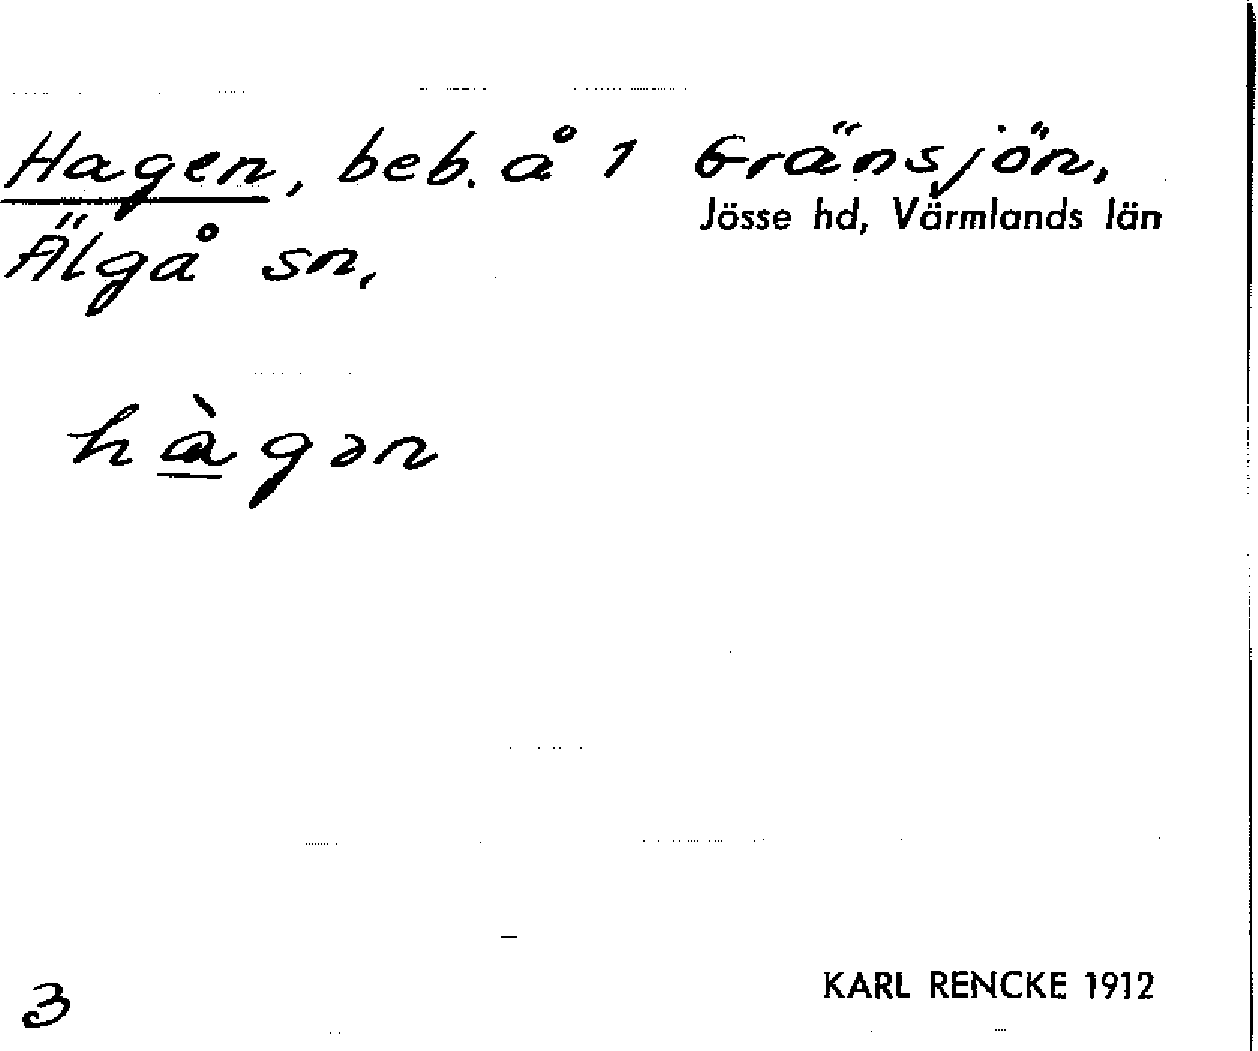 Hagen, beb. å 1 Gränsjön,
Älgå sn, Jösse hd, Värmlands län
hà̱gən
3
KARL RENCKE 1912